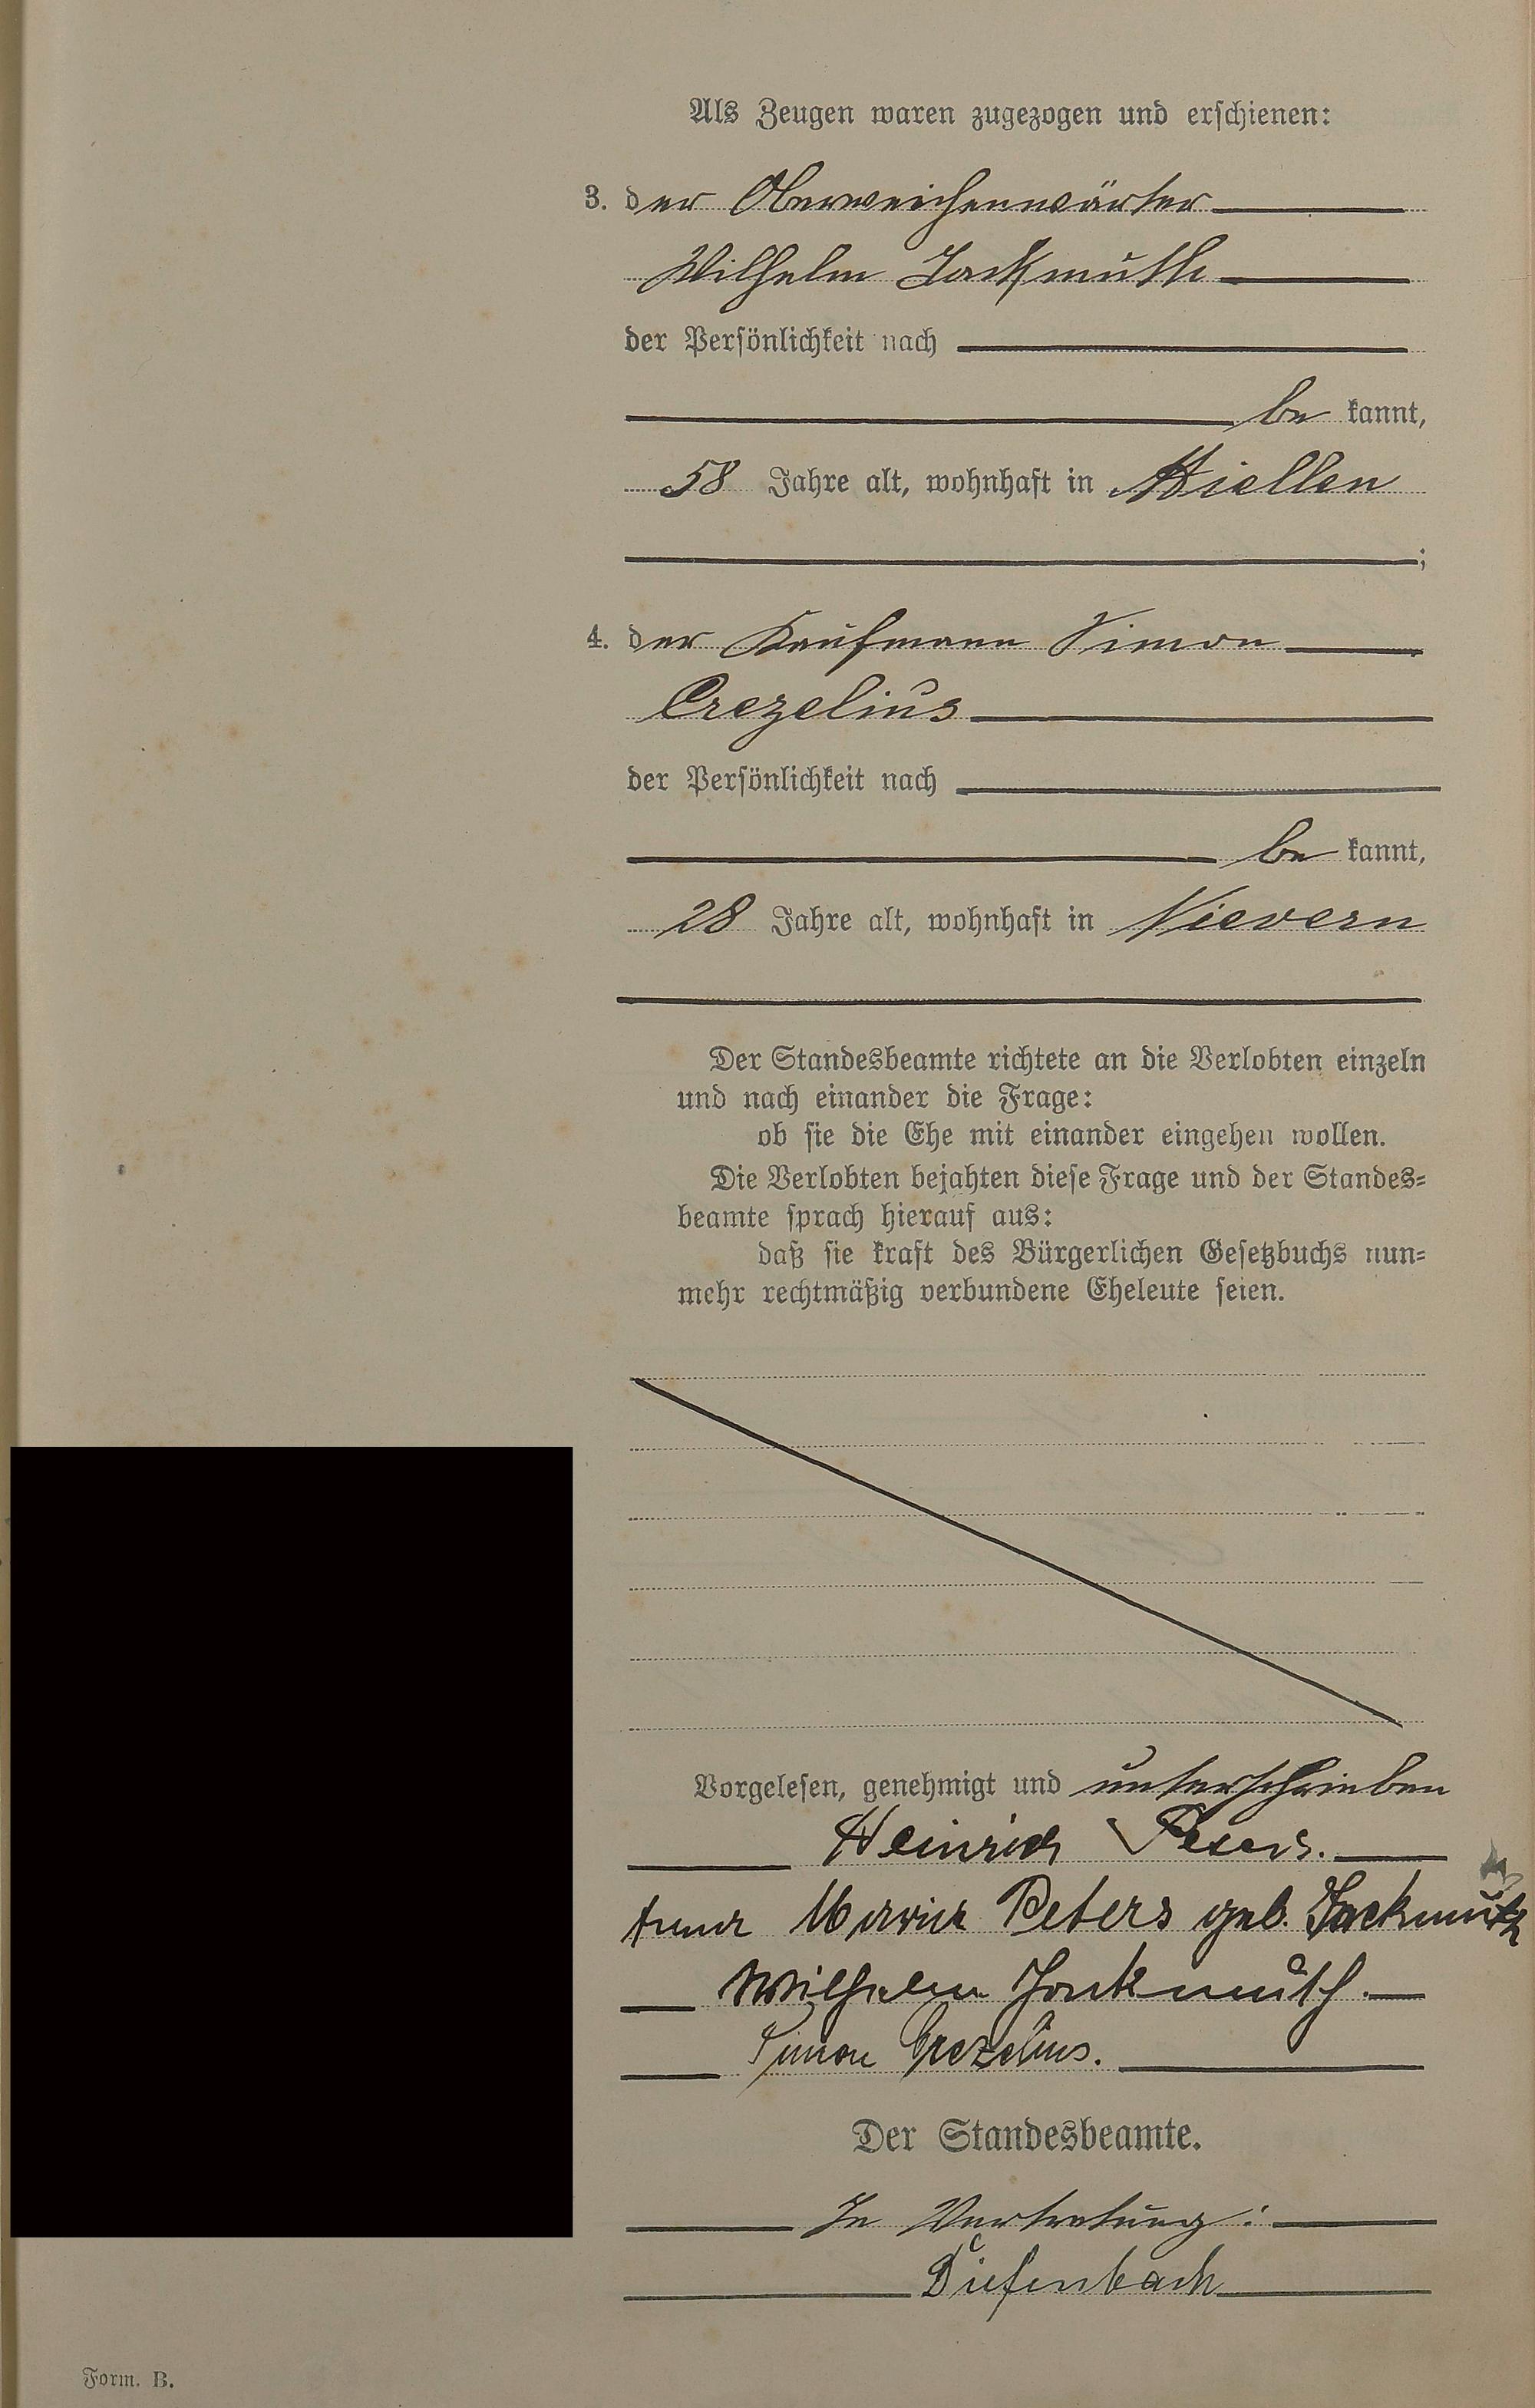 Als Zeugen waren zugezogen und erschienen:
3. der Oberweichenwärter
Wilhelm Jackmuth
der Persönlichkeit nach
be kannt,
58 Jahre alt, wohnhaft in Miellen
;
4. der Kaufmann Simon
Crezelius
der Persönlichkeit nach
be kannt,
28 Jahre alt, wohnhaft in Nievern
Der Standesbeamte richtete an die Verlobten einzeln
und nach einander die Frage:
ob sie die Ehe mit einander eingehen wollen.
Die Verlobten bejahten diese Frage und der Standes-
beamte sprach hierauf aus:
daß sie kraft des Bürgerlichen Gesetzbuchs nun-
mehr rechtmäßig verbundene Eheleute seien.
Vorgelesen, genehmigt und unterschrieben
Heinrich Peters.
Anna Maria Peters geb. Jackmuth
Wilhelm Jackmuth.
Simon Crezelius.
Der Standesbeamte.
In Vertretung:
Diefenbach
Form. B.